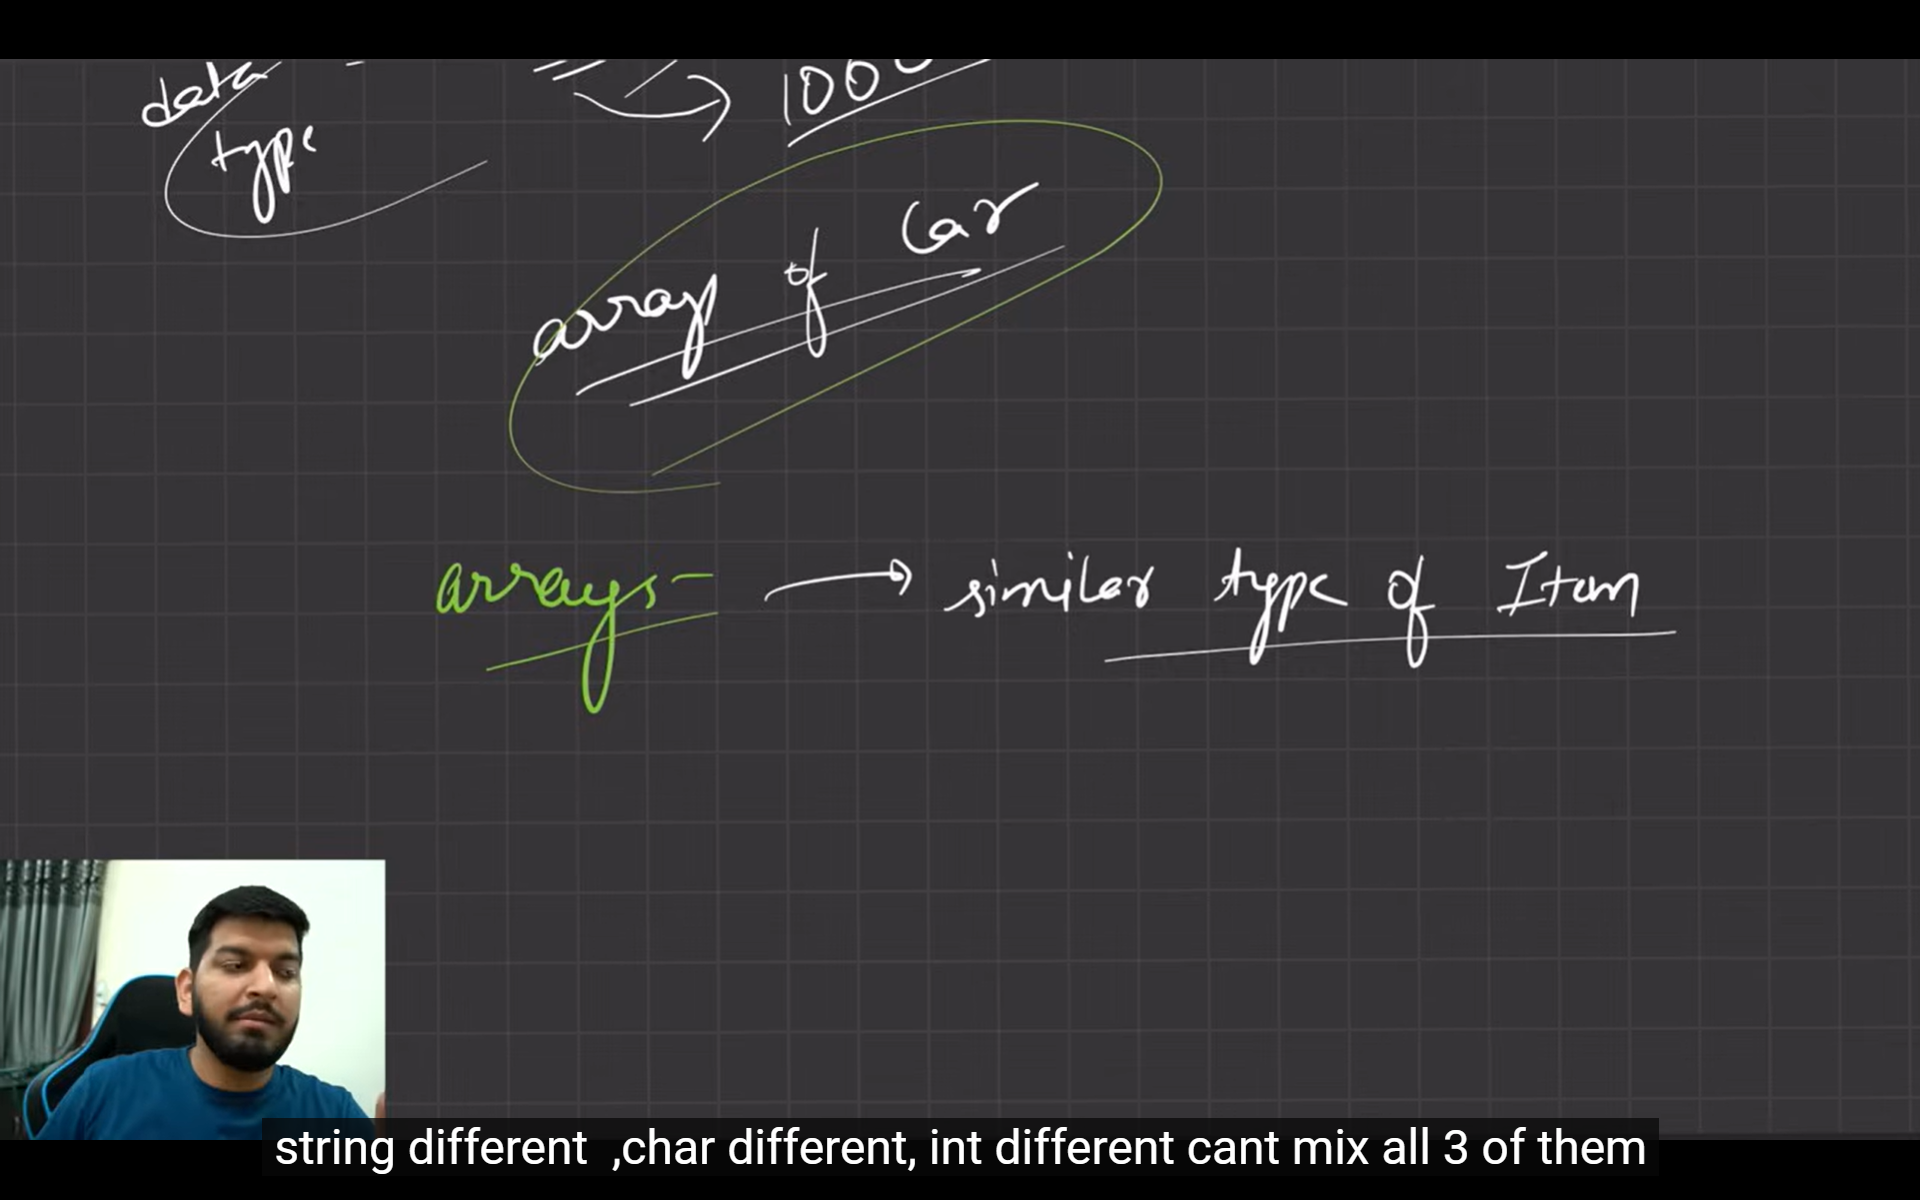 data
type
1000
array of Car
arrays → similar type of Item
string different ,char different, int different cant mix all 3 of them